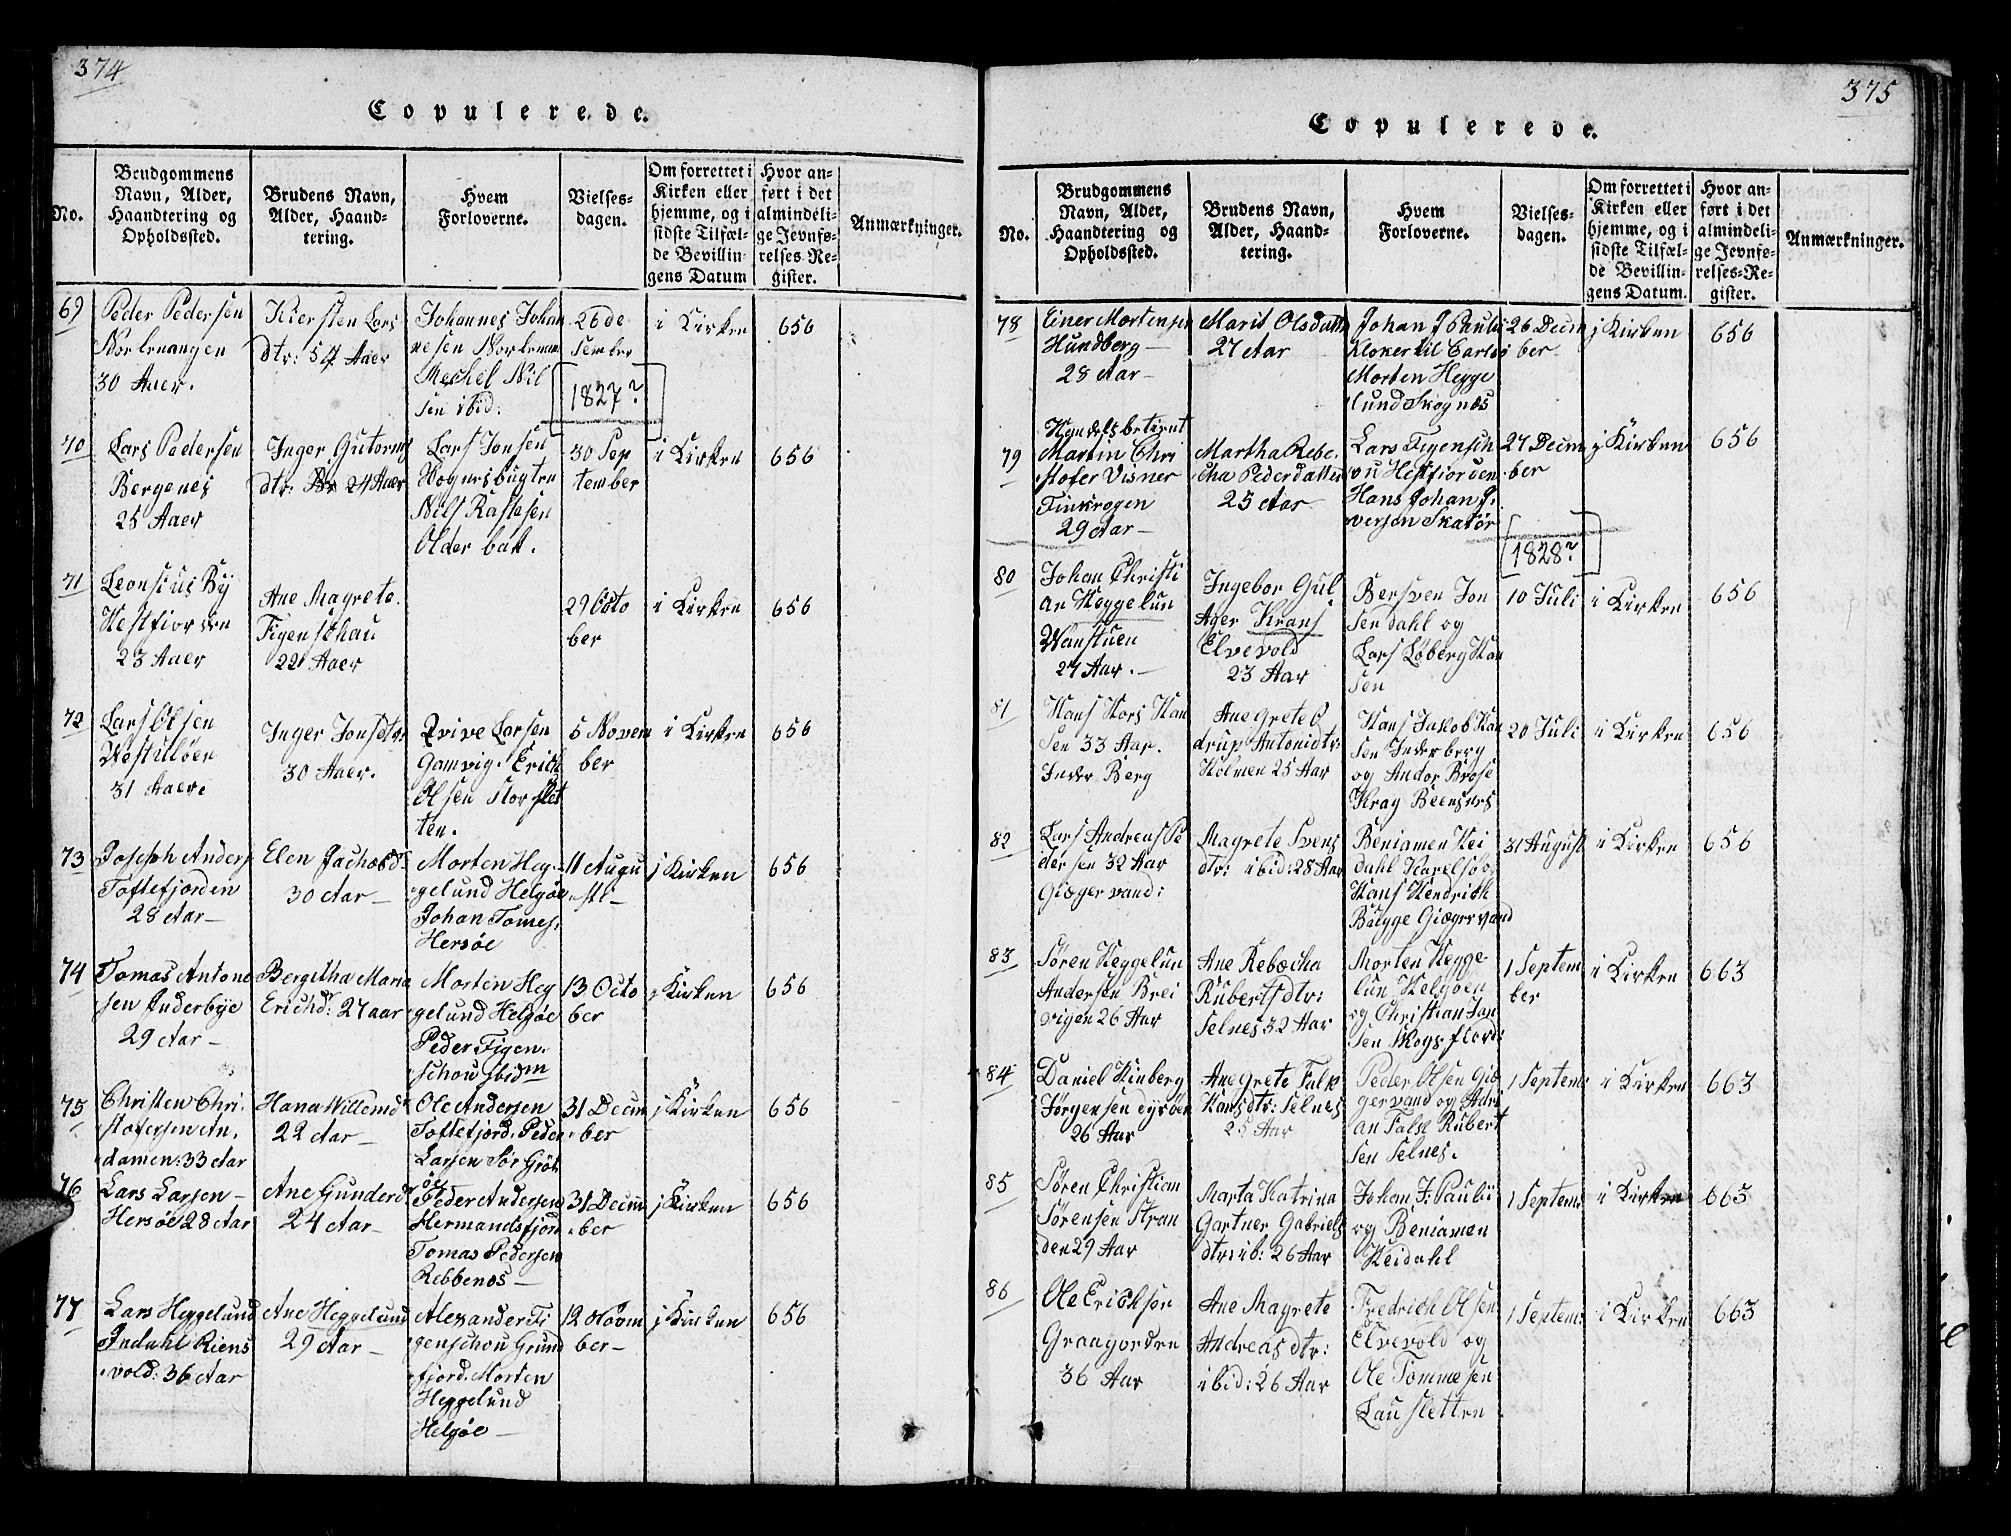 374
Copulerede.
No.
Brudgommens
Navn, Alder,
Haandtering og
Opholdssted.
Brudens Navn,
Alder, Haand-
tering.
Hvem
Forloverne.
Vielses-
dagen.
Om forrettet i
Kirken eller
hjemme, og i
sidste Tilfæl-
de Bevillin-
gens Datum
Hvor an-
ført i det
almindeli-
ge Jevnfø-
relses-Re-
gister.
Anmærkninger.
69
Peder Pedersen
Norlenangen
30 Aaer.
Kiersten Lars
dtr: 54 Aaer
Johannes Johan
nesen Norlenan
Mechel Nil
sen ibid:
26 de
sember
i Kirken
656
[1827?]
70
Lars Pedersen
Bergenes
25 Aaer
Inger Gutorms
dtr: 24 Aaer
Lars Jonsen
Wognersbugten
Nils Rastesen
Olderbak.
30 Sep
tember
i Kirken
656
71
Leonsius By
Hestfiorden
23 Aaer
Ane Magrete
Figensøhau
22 Aaer
29 Octo
ber
i Kirken
656
72
Lars Olsen
31 Aaer.
Inger Jonsdtr:
30 Aaer.
Qvive Larsen
Gamvig. Erich
Olsen Storslet
ten.
5 Novem
ber
i Kirken
656
73
Joseph Anders
Toftefjorden
28 Aar —
Elen Jachobsd:
30 Aar —
Morten Heg-
gelund Helgøe
Johan Tomes.
Hersøe
11 Augu
st —
i Kirken
656
74
Tomas Antone
sen Inderbye
29 Aar —
Bergitha Maria
Erichd: 27 aar
Morten Heg
gelund Helgøe
Peder Figen-
schou ibidm
13 Octo
ber
i Kirken
656
75
Christen Chri-
stofersen An.
damen: 33 Aar
Hana Willemd
22 Aar —
Ole Andersen
Toftefjord. Peder
Larsen Sør Grøt
øe
31 Decem
ber
i Kirken
656
76
Lars Larsen —
Hersøe 28 Aar
Ane Gunderd
24 Aar —
Peder Andersen
Hermandsfjord
Tomas Pedersen
Rebbenes —
31 Decem
ber
i Kirken
656
77
Lars Heggelund
Indahl Riens
vold: 36 Aar
Ane Heggelund
29 Aar —
Alexander Fi
genschou Grund
fjord. Morten
Heggelund
Helgøe —
12 Novm
ber —
i Kirken
656
375
Copulerede.
No.
Brudgommens
Navn, Alder,
Haandtering og
Opholdssted.
Brudens Navn,
Alder, Haand-
tering.
Hvem
Forloverne.
Vielses-
dagen.
Om forrettet i
Kirken eller
hjemme, og i
sidste Tilfæl-
de Bevillin-
gens Datum.
Hvor an-
ført i det
almindeli-
ge Jevnfø-
relses-Re-
gister.
Anmærkninger.
78
Einer Mortensen
Hundberg —
28 Aar —
Marit Olsdatter
27 Aar
Johan J Paulii
Kloker til Carlsø
Morten Hegge
lund Skognæs
26 Decem
ber
i Kirken
656
79
Handelsbetient
Martin Chri
stofer Visner
Finkrogen
29 Aar —
Martha Rebe-
cha Pederdatter
25 Aar
Lars Figensch
ou Hestfiorden
Hans Johan I.
versen Skatør
27 Decem
ber
i Kirken
656
[1828?]
80
Johan Christi
an Heggelun
Wanstuen
27 Aar. —
Ingebor Gul
Ager Krans
Elvevold
23 Aar
Bersven Jon
sen dahl og
Lars Løberg Han
sen
10 Juli
i Kirken
656
81
Hans Hors Han
sen 33 Aar.
Inder Berg
Ane Grete O
drup Antonidtr
Holmen 25 Aar
Hans Jakob Han
sen Inderberg
og Andor Brose
Krag Beensnes
20 Juli
i Kirken
656
82
Lars Andreas Pe
dersen 32 Aar
Giæger vand:
Magrete Svens
dtr: ibid: 28 Aar
Beniamen Hei
dahl Karelsø og
Hans Hendrich
Bügge Giægervand
31 August
i Kirken
656
83
Søren Heggelun
Andersen Brei
vigen 26 Aar
Ane Rebæcha
Rubertsdtr:
Selnes 32 Aar
Morten Hegge-
lun Helgøen
og Christian Jan
sen Skogsfjord:
1 Septem
ber
i Kirken
663
84
Daniel Kinberg
Jørgensen dyrøen
26 Aar
Ane Grete Falk
Hansdtr: Selnes
25 Aar
Peder Olsen Giæ
gervand og Adri
an Falk Rubert
sen Selnes.
1 Septem:
i Kirken
663
85
Søren Christian
Sørensen Stran
den 29 Aar
Marta Katrina
Gartner Gabriels
dtr: ib: 26 Aar
Johan J: Paulii
og Beniamen
Heidahl
1 Septem:
i Kirken
663
86
Ole Ericksen
Grangorden
36 Aar
Ane Magrete
Andreasdtr:
ibid: 26 Aar
Fredrich Olsen
Elvevold og
Ole Tommesen
Lauskletten
1 Septem:
i Kirken
663